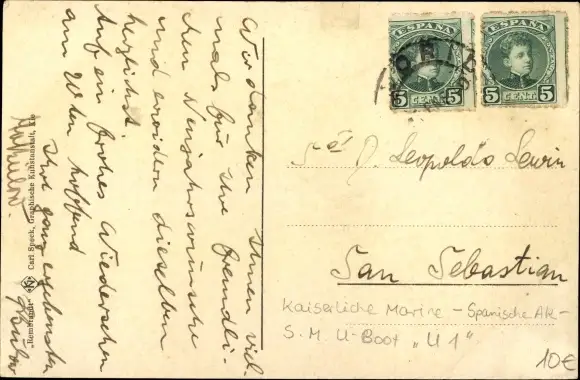 Wir danken Ihnen viel-
mals für Ihre freundli-
chen Neujahrswünsche
und erwidern dieselben
herzlichst.
Auf ein frohes Wiedersehen
am 10ten hoffend
Ihre ganz ergebensten
"Rembrandt" Carl Speck, Graphische Kunstanstalt, Kie
ESPAÑA
5 CENT. 5
ESPAÑA
5 CENT. 5
Sr. D. Leopoldo Lewin
San Sebastian
Kaiserliche Marine – Spanische Ak-
S.M. U-Boot „U 1"
10€